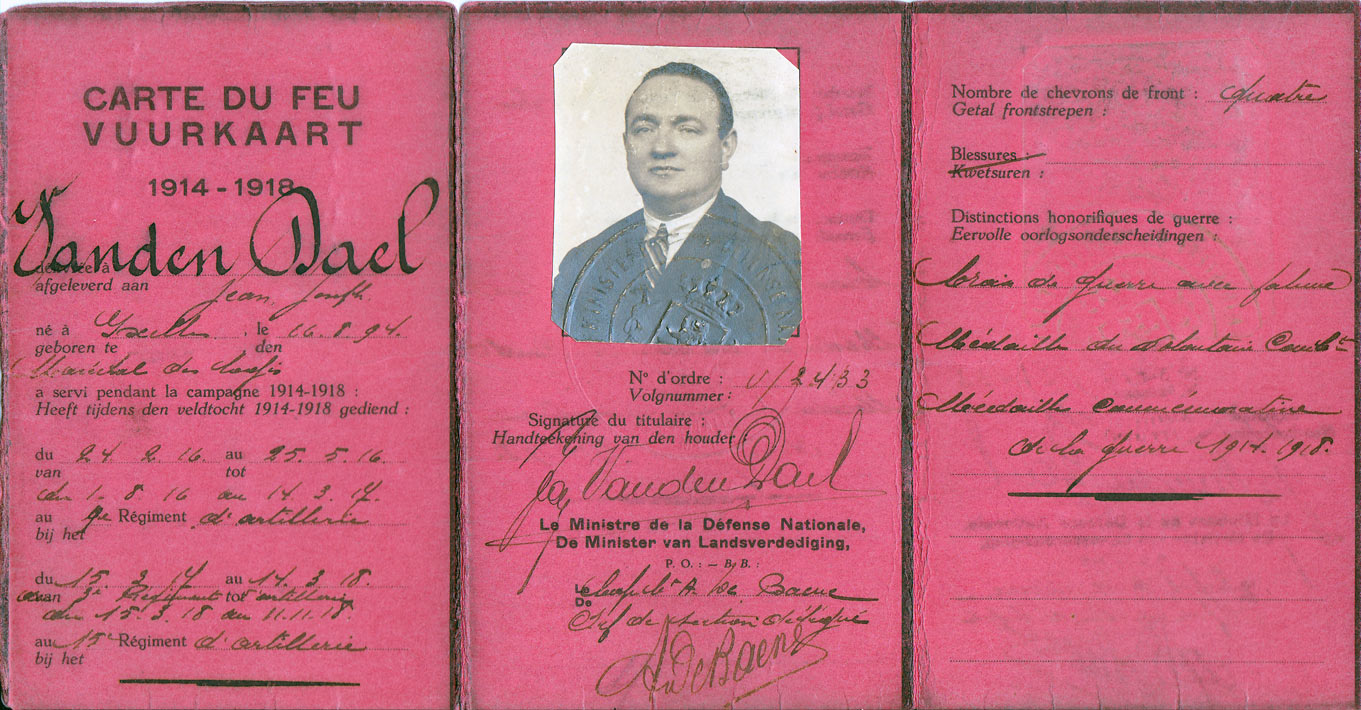 CARTE DU FEU
VUURKAART
1914-1918
Vanden Dael
délivrée à
afgeleverd aan
Jean Joseph
né à Ixelles, le 16.8.94.
geboren te den
Maréchal des logis
a servi pendant la campagne 1914-1918 :
Heeft tijdens den veldtocht 1914-1918 gediend :
du 24 2. 16. au 25. 5. 16
van tot
du 1. 8 16 au 14. 3. 17.
au 9e Régiment d'artillerie
bij het
du 15. 3 17 au 14. 3 18.
van tot
au 3e Régiment artillerie
du 15. 3. 18 au 11.11.18.
au 15e Régiment d'artillerie
bij het
MINISTER
N° d'ordre : V/2433
Volgnummer :
Signature du titulaire :
Handteekening van den houder :
Vanden Dael
Le Ministre de la Défense Nationale,
De Minister van Landsverdediging,
P. O. : — B. B. :
Le
De
A. De Baene
Chef de section délégué
A. De Baene
Nombre de chevrons de front : quatre
Getal frontstrepen :
Blessures :
Kwetsuren :
Distinctions honorifiques de guerre :
Eervolle oorlogsonderscheidingen :
Croix de guerre avec palme
Médaille du Volontaire Combt
Médaille Commémorative
de la guerre 1914-1918.